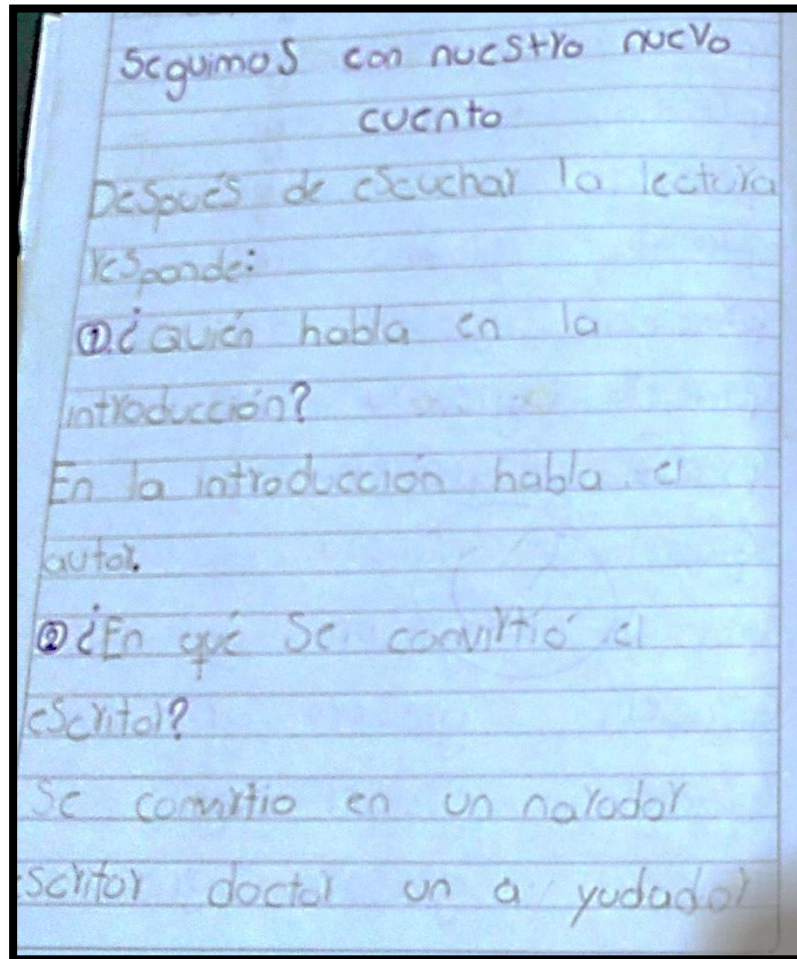 Seguimos con nuestro nuevo
cuento
Después de escuchar la lectura
responde:
①. ¿Quién habla en la
introducción?
En la introducción habla el
autor.
② ¿En qué se convirtió el
escritor?
Se convirtio en un narador
escritor doctor un a yudador